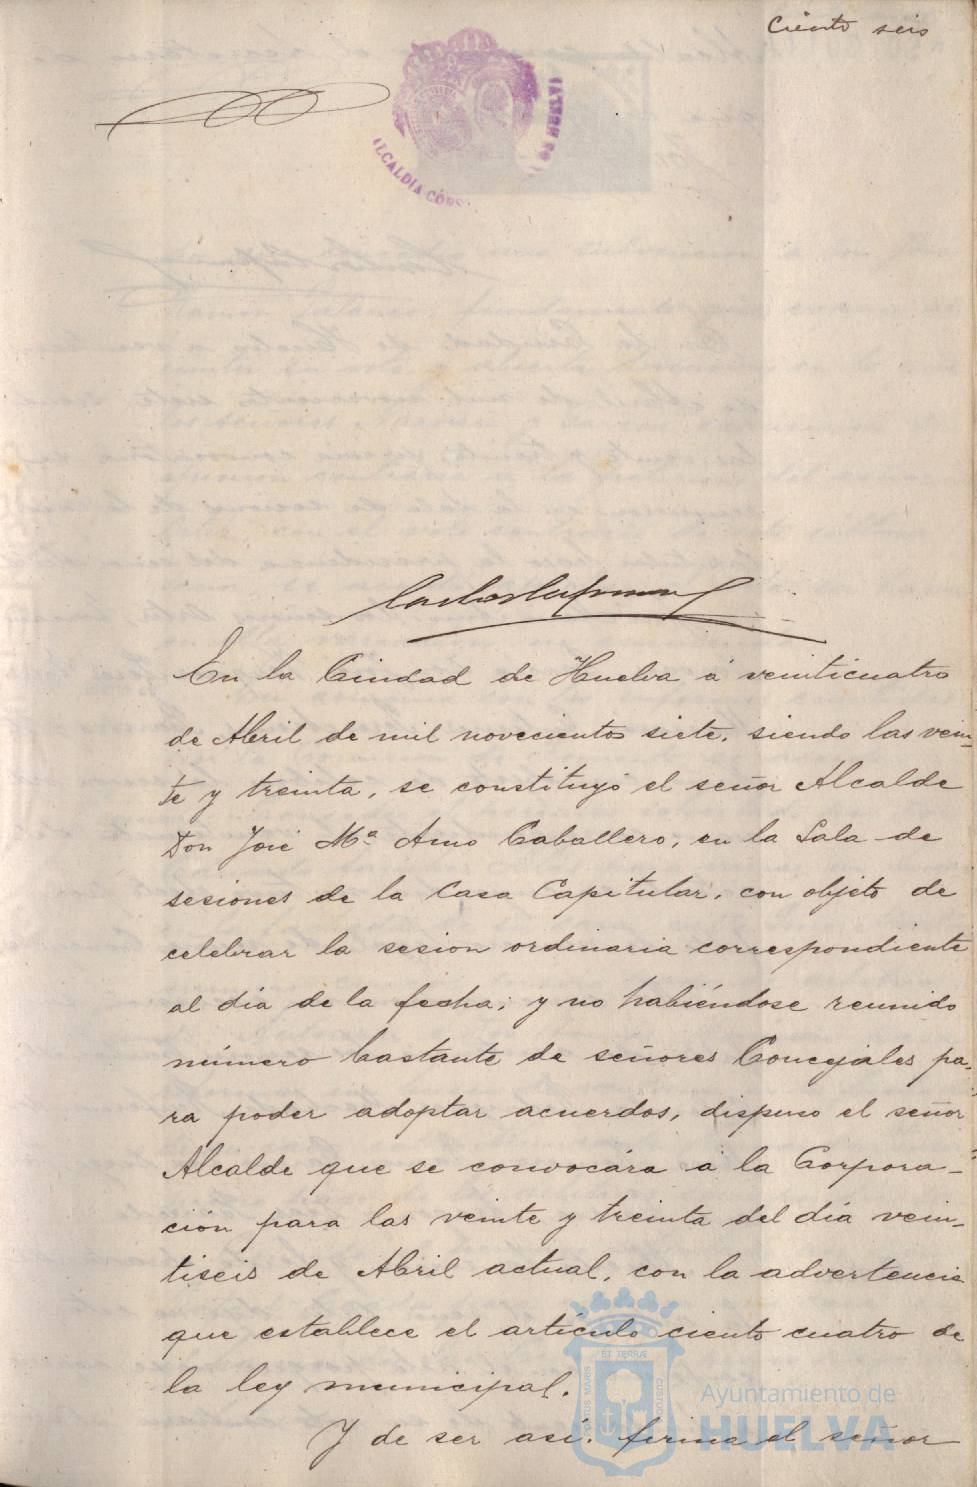 Ciento seis
ALCALDIA CONS
DE HUELVA
En la Ciudad de Huelva á veinticuatro
de Abril de mil novecientos siete, siendo las vein-
te y treinta, se constituyó el señor Alcalde
Don José Mª Amo Caballero, en la Sala de
sesiones de la Casa Capitular, con objeto de
celebrar la sesion ordinaria correspondiente
al día de la fecha; y no habiéndose reunido
número bastante de señores Concejales pa-
ra poder adoptar acuerdos, dispuso el señor
Alcalde que se convocára á la Corpora-
ción para las veinte y treinta del día vein-
tiseis de Abril actual, con la advertencia
que establece el artículo ciento cuatro de
la ley municipal.
Y de ser así, firma el señor
PORTUS MARIS
ET TERRÆ
CUSTODIA
Ayuntamiento de
HUELVA